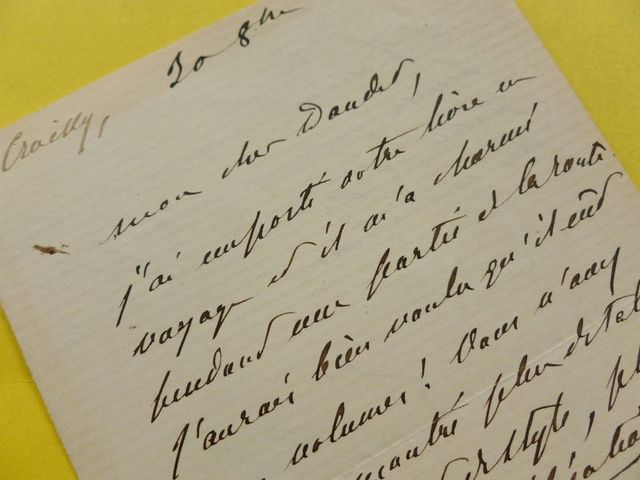 30 8bre
mon cher Daudet,
j'ai emporté votre livre en
voyage et il m'a charmé
pendant une partie de la route.
J'aurais bien voulu qu'il eût
volumes! Vous n'avez
plus de tal
de style, pl